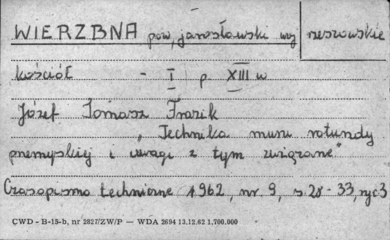 WIERZBNA pow. jarosławski woj rzeszowskie
kościół - I p XIII w
Józef Tomasz Frazik
"Technika muru rotundy
przemyskiej i uwagi z tym związane"
Czasopismo techniczne 1962, nr 9, s. 28-33, ryc 3
CWD - B-15-b, nr 2827/ZW/P — WDA 2694 13.12.62 1,700.000